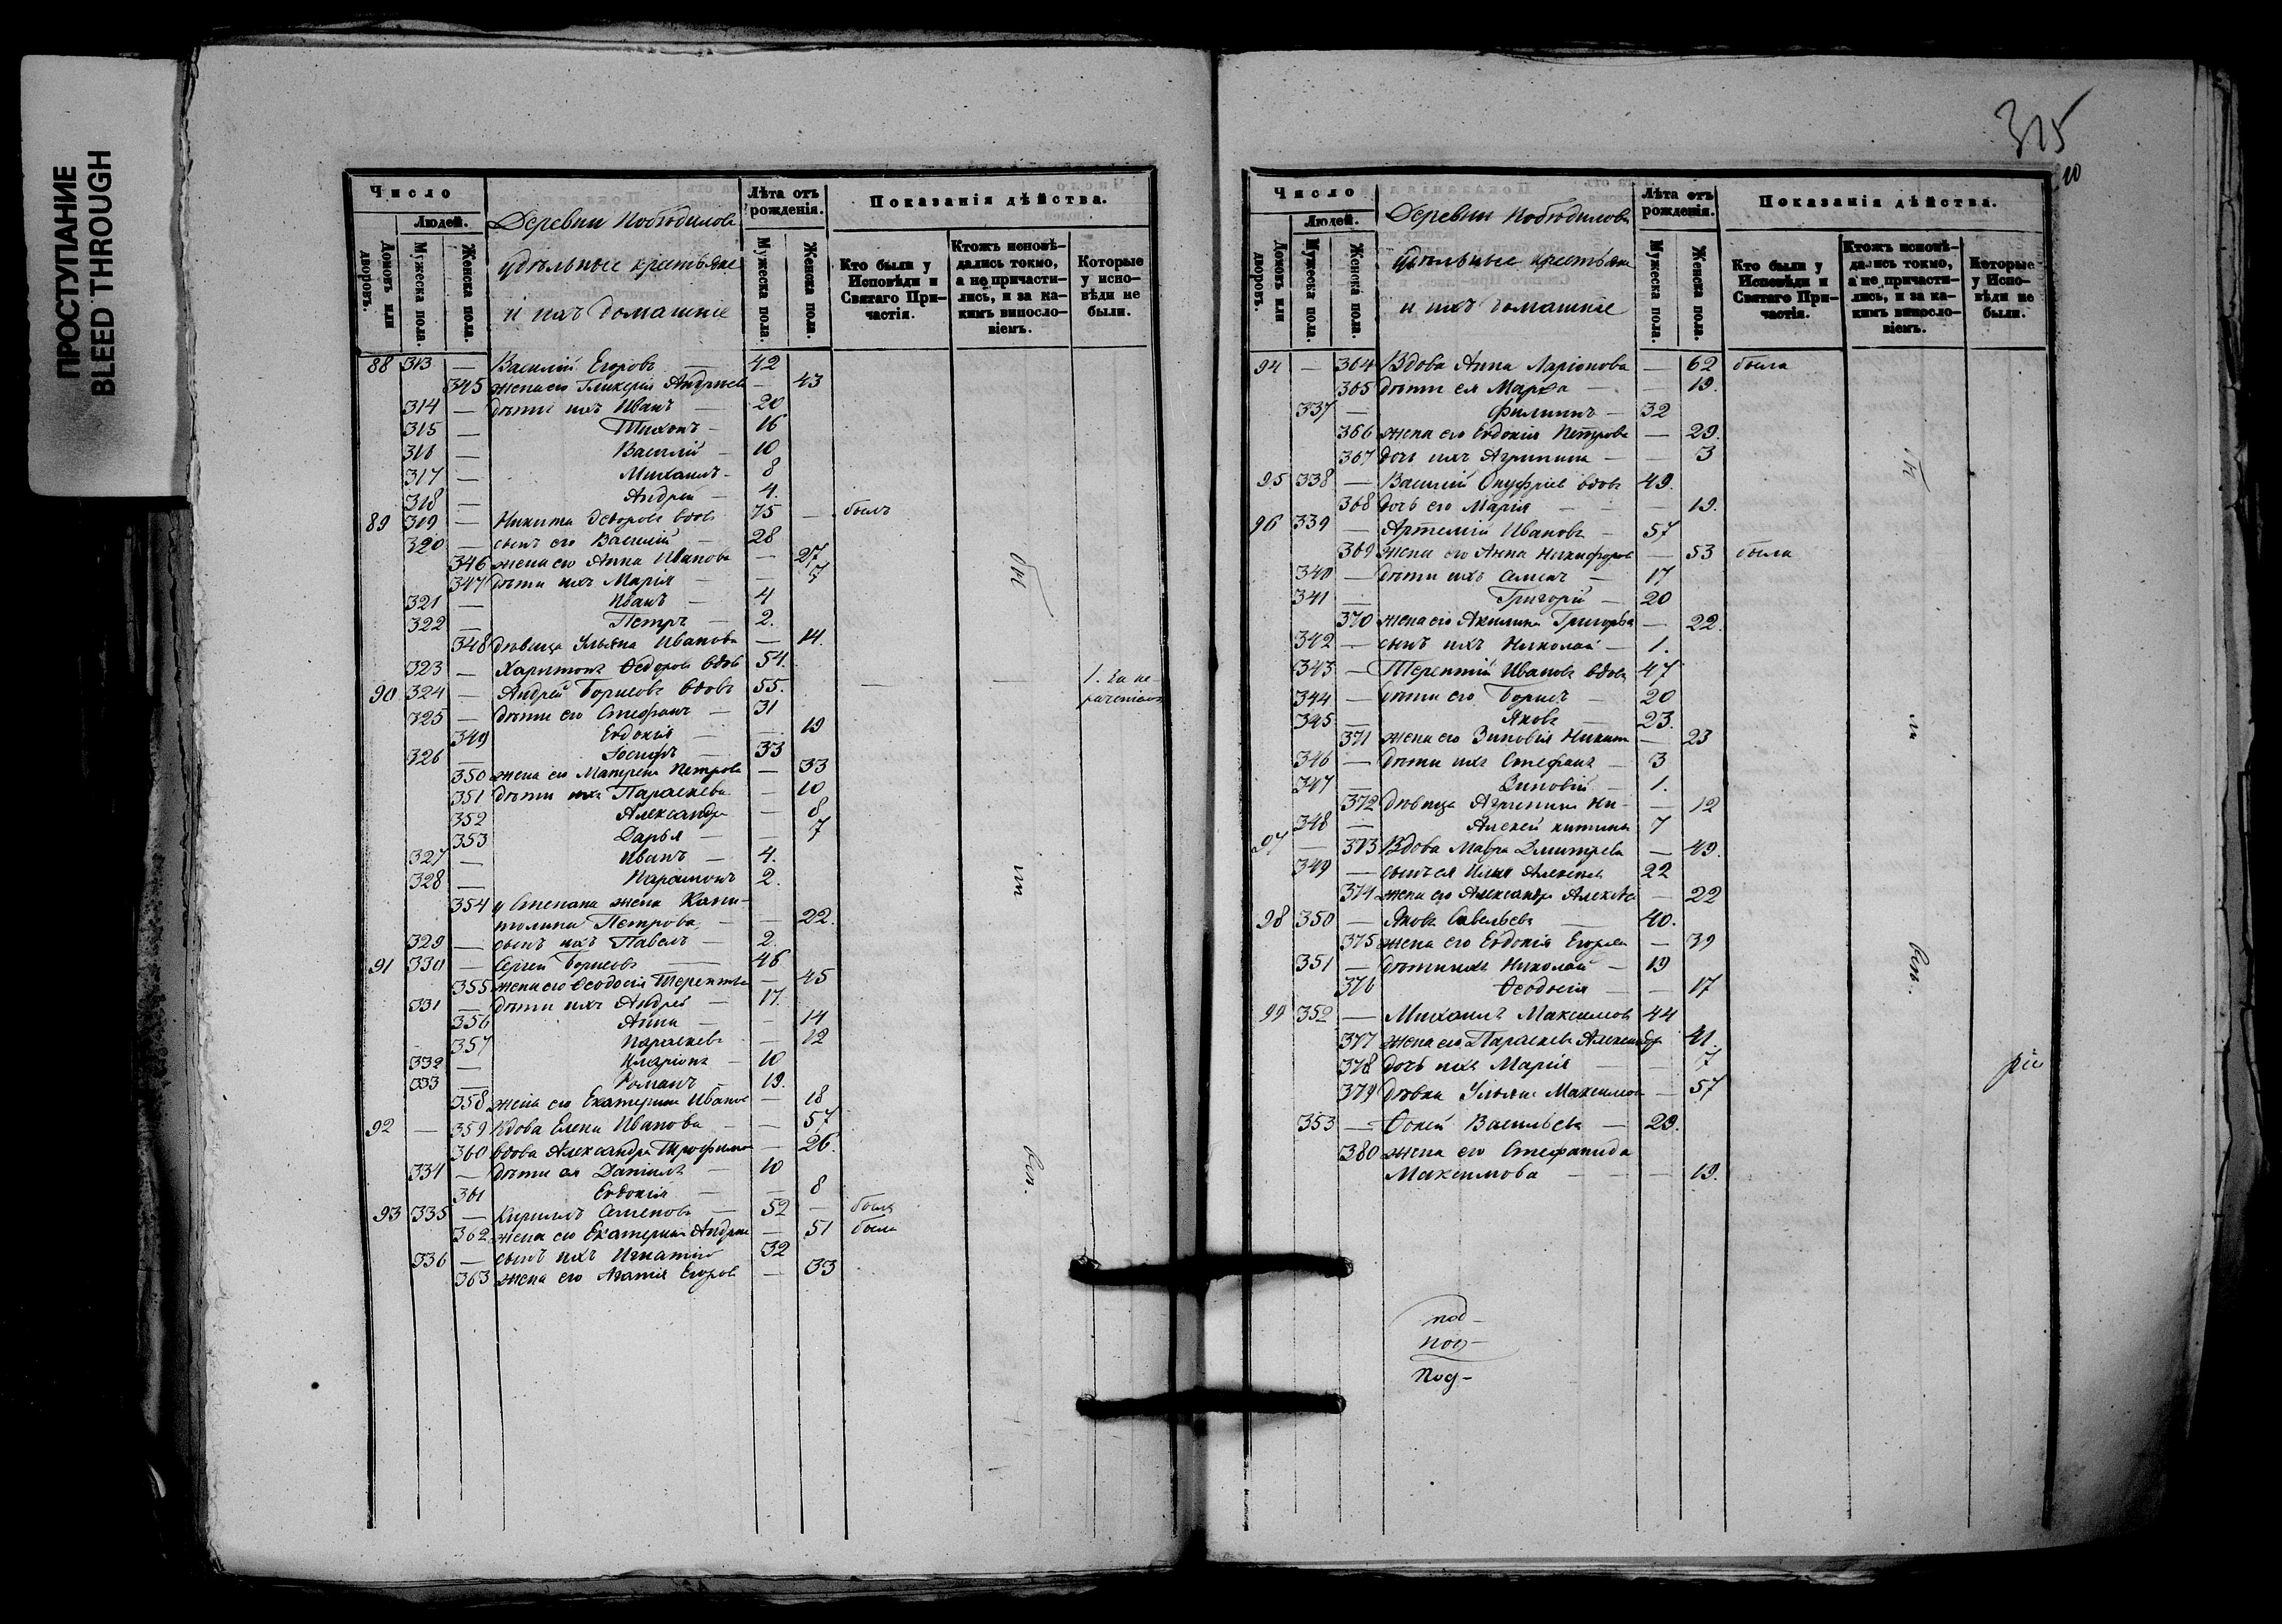 ПРОСТУПАНИЕ
BLEED THROUGH
Число
Людей.
Домовъ или дворовъ.
Мужеска пола.
Женска пола.
Деревни
удѣльные крестьяне
и ихъ домашніе
Лѣта отъ рожденія.
Мужеска пола.
Женска пола.
Показанія дѣйства.
Кто были у Исповѣди и Святаго При-частія.
Ктожъ исповѣ-дались токмо, а не причасти-лись, и за ка-кимъ виносло-віемъ.
Которые у испо-вѣди не были.
88 313 — Василій Егоровъ — 42
345 жена его Гликерія Андреева — 43
314 — дѣти ихъ Иванъ — 20
315 — Тихонъ — 16
316 — Василій — 10
317 — Михаилъ — 8
318 — Андрей — 4.
89 319 — Никита Ѳедоровъ вдовъ 75 — былъ
320 — сынъ его Василій — 28
346 жена его Анна Иванова — 27
347 дѣти ихъ Марія — — 7
321 — Иванъ — 4
322 — Петръ — 2.
348 дѣвица Ульяна Иванова — 14.
323 — Харитонъ Ѳедоровъ вдовъ 54.
90 324 — Андрей Борисовъ вдовъ 55. — — 1. За не-
325 — дѣти его Стефанъ — 31
349 Евдокія — — 19
326 — Іосифъ — 33
350 жена его Матрена Петрова — 33
351 дѣти ихъ Параскева — 10
352 Александра — 8
353 Дарья — — 7
327 — Иванъ — 4.
328 — Парамонъ 2.
354 у Степана жена Капи-
толина Петрова — — 22.
329 — сынъ ихъ Павелъ — 2.
91 330 — Сергей Борисовъ — 46
355 жена его Ѳеодосія Терентьева — 45
331 — дѣти ихъ Андрей — 17.
356 Анна — — 14
357 Параскева — 12
332 — Иларіонъ — 10
333 — Романъ — 19.
358 жена его Екатерина Иванов — 18
92 — 359 Вдова Елена Иванова — — 57
360 вдова Александра Трофимо — 26.
334 — дѣти ея Даніилъ — 10
361 Евдокія — — 8
93 335 — Кириллъ Семеновъ — 52 — былъ
362 жена его Екатерина Андрее — 51 была
336 — сынъ ихъ Игнатій 32
363 жена его Агатія Егоров — 33
315
Число
Людей.
Домовъ или дворовъ.
Мужеска пола.
Женска пола.
Деревни
удѣльные крестьяне
и ихъ домашніе
Лѣта отъ рожденія.
Мужеска пола.
Женска пола.
Показанія дѣйства.
Кто были у Исповѣди и Святаго При-частія.
Ктожъ исповѣ-дались токмо, а не причасти-лись, и за ка-кимъ виносло-віемъ.
Которые у Испо-вѣди не были.
94 — 364 Вдова Анна Ларіонова — 62 была
365 дѣти ея Марѳа — — 19.
337 — Филиппъ — 32
366 жена его Евдокія Петрова — 29.
367 дочь ихъ Агрипина — — 3
95 338 — Василій Онуфріев вдовъ 49.
368 дочь его Марія — — 19.
96 339 — Артемій Ивановъ — 57
369 жена его Анна Никифоров — 53 была
340 — дѣти ихъ Семенъ — 17
341 — Григорій — 20
370 жена его Акилина Григорьева — 22.
342 — сынъ ихъ Николай — 1.
343 — Терентій Ивановъ вдовъ 47
344 — дѣти его Борисъ — 20
345 — Яковъ — 23.
371 жена его Зиновія Никит — 23
346 — дѣти ихъ Стефанъ — 3
347 — Зиновій — 1.
372 дѣвица Агрипина Ни- — 12
348 — Алексѣй китины 7
97 — 373 Вдова Мавра Дмитрева — 49.
349 — сынъ ея Илья Алексѣевъ 22
374 жена его Александра Алексѣе — 22
98 350 — Яковъ Савельевъ — 40.
375 жена его Евдокія Егорова — 39
351 — дѣти ихъ Николай — 19
376 Ѳеодосія — — 17
99 352 — Михаилъ Максимовъ 44
377 жена его Параскева Александр 41.
378 дочь ихъ Марія — — 7
379 дѣвка Ульяна Максимова — 57
353 — Фокей Васильевъ — 29.
380 жена его Стефанида
Максимова — — 19.